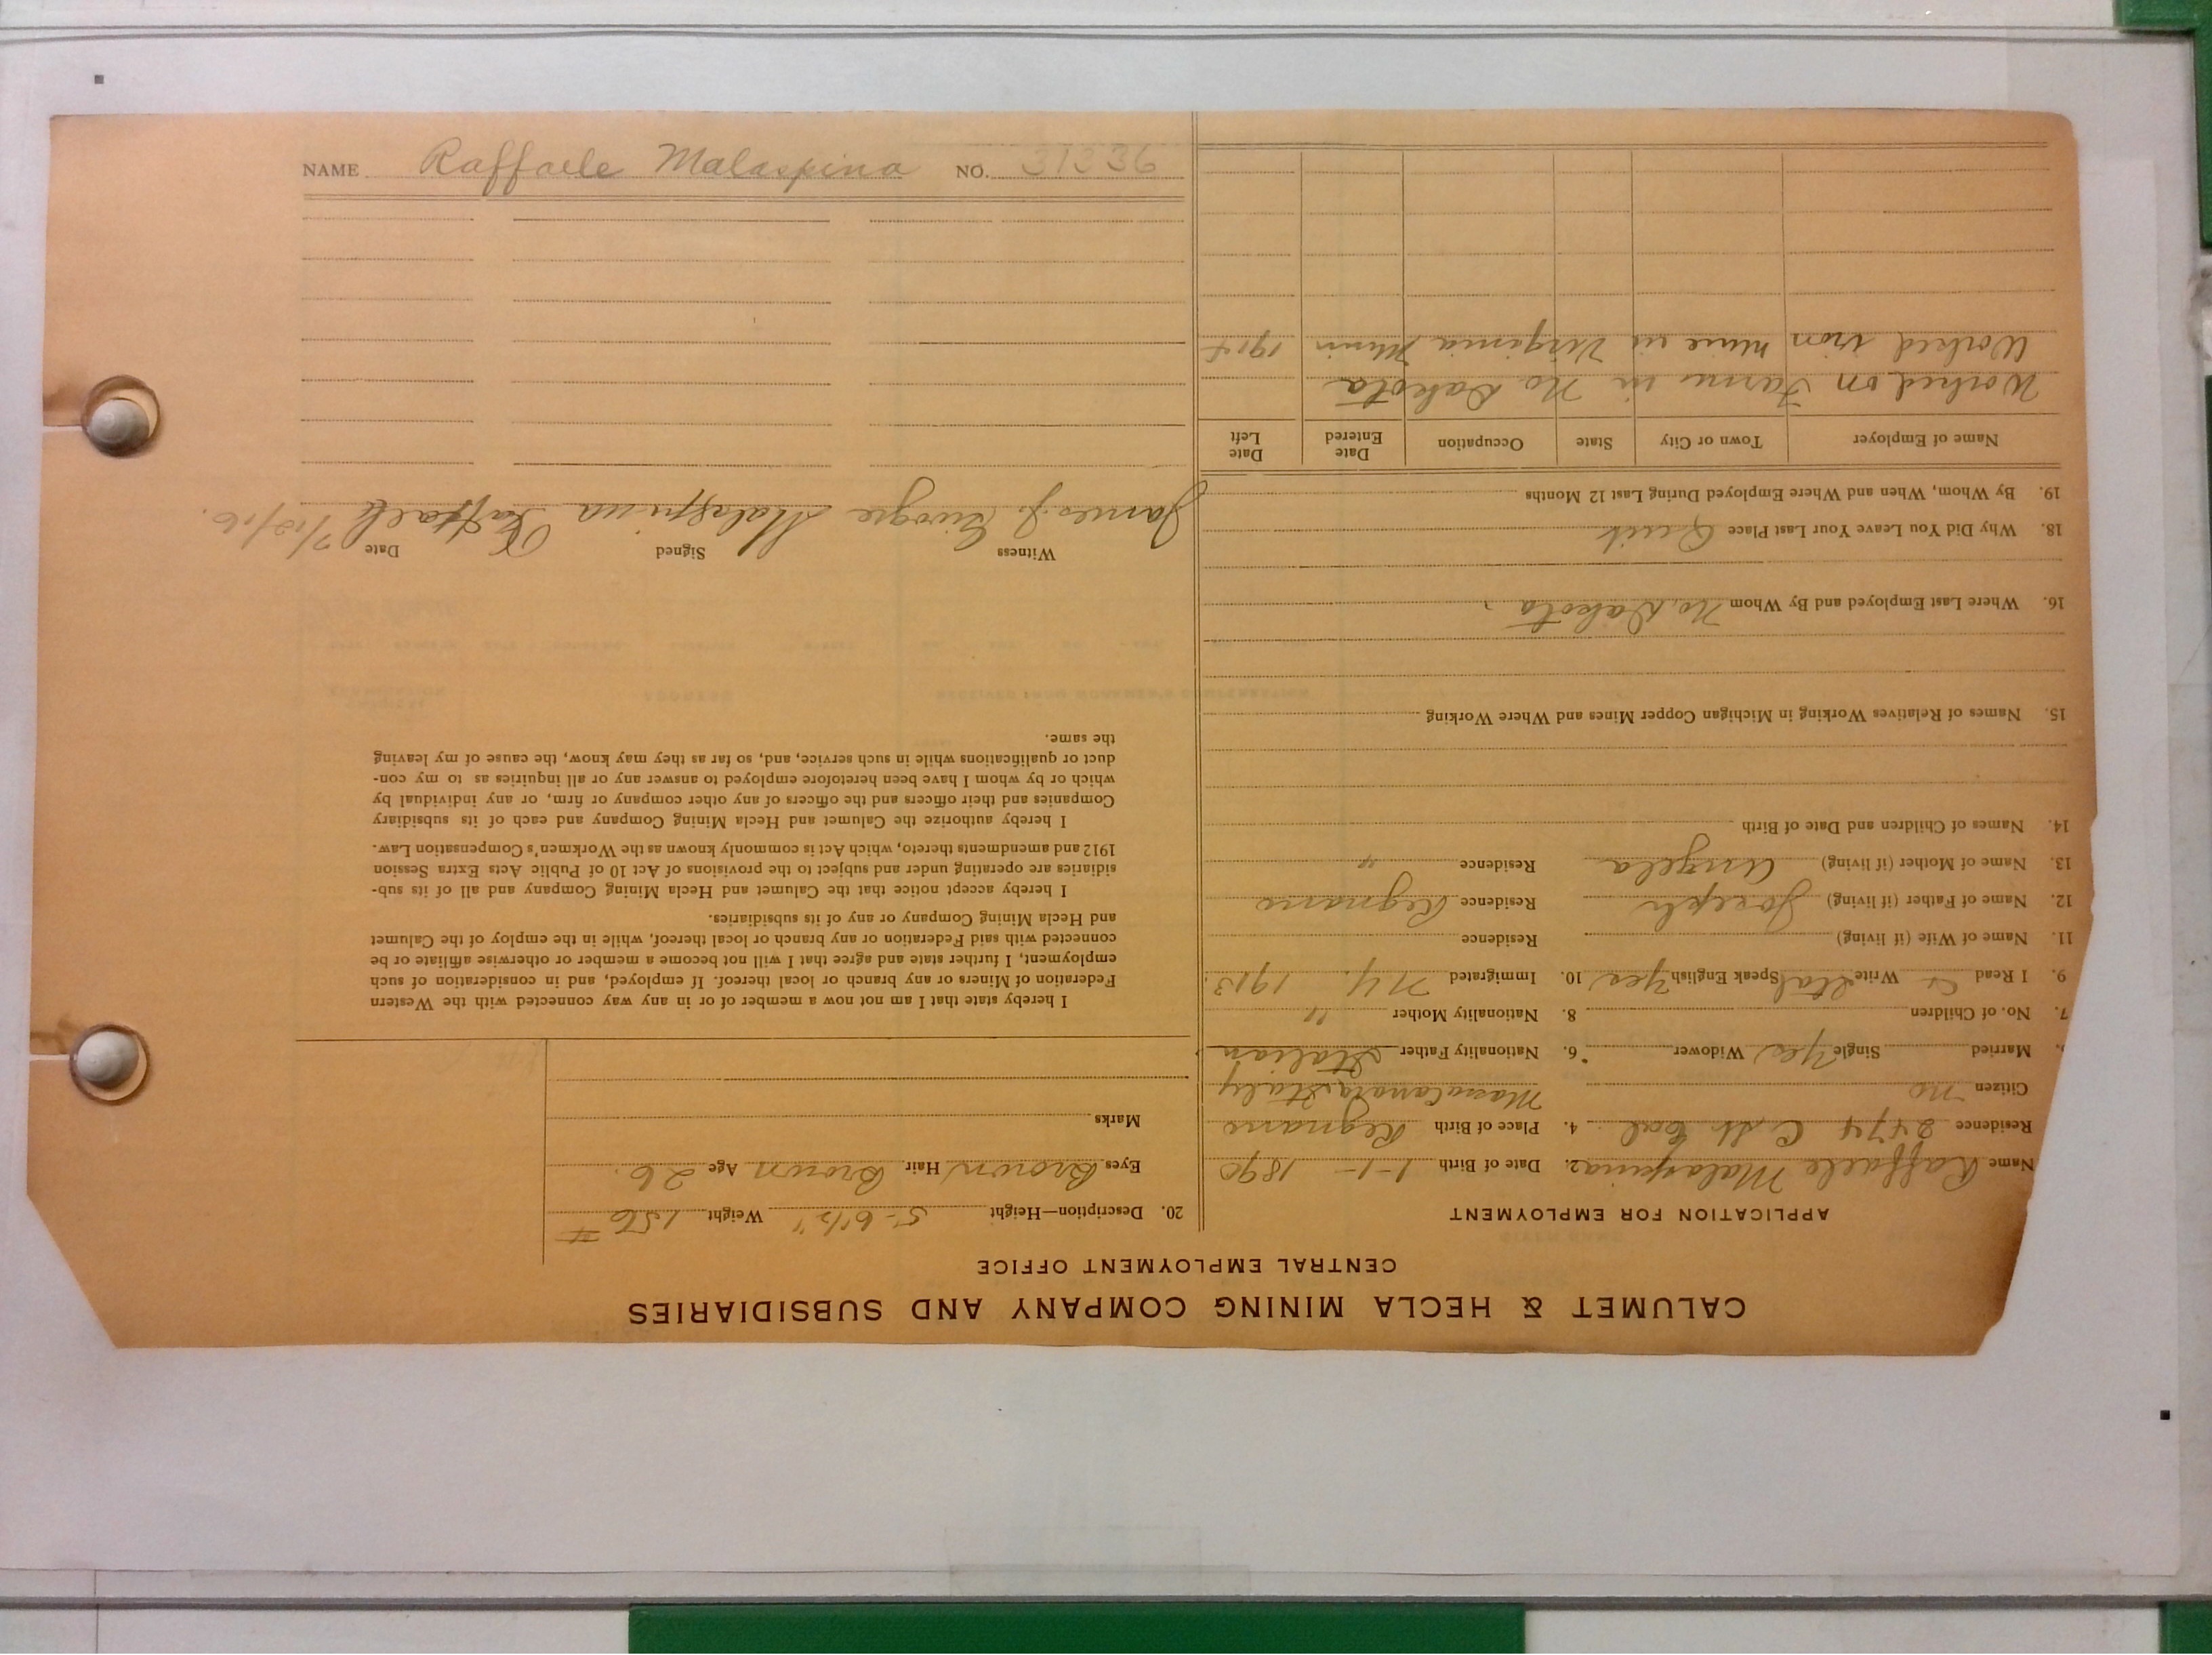 CALUMET & HECLA MINING COMPANY AND SUBSIDIARIES
CENTRAL EMPLOYMENT OFFICE
APPLICATION FOR EMPLOYMENT
Name Raffaele Malaspina 2. Date of Birth 1-1-1890
Residence 2474 C. St Cal 4. Place of Birth Regnano
Citizen no Massa Carrara, Italy
Married Single Yes Widower 6. Nationality Father Italian
7. No. of Children 8. Nationality Mother "
9. I Read & Write Ital Speak English Yes 10. Immigrated N.Y. 1913.
11. Name of Wife (if living) Residence
12. Name of Father (if living) Joseph Residence Regnano
13. Name of Mother (if living) Angela Residence "
14. Names of Children and Date of Birth
15. Names of Relatives Working in Michigan Copper Mines and Where Working
16. Where Last Employed and By Whom No. Dakota
18. Why Did You Leave Your Last Place Quit
19. By Whom, When and Where Employed During Last 12 Months
Name of Employer Town or City State Occupation Date Entered Date Left
Worked on Farm in No Dakota
Worked iron mine in Virginia Minn 1914
20. Description—Height 5-6 1/2" Weight 156 #
Eyes Brown Hair Brown Age 26.
Marks
I hereby state that I am not now a member of or in any way connected with the Western
Federation of Miners or any branch or local thereof. If employed, and in consideration of such
employment, I further state and agree that I will not become a member or otherwise affiliate or be
connected with said Federation or any branch or local thereof, while in the employ of the Calumet
and Hecla Mining Company or any of its subsidiaries.
I hereby accept notice that the Calumet and Hecla Mining Company and all of its sub-
sidiaries are operating under and subject to the provisions of Act 10 of Public Acts Extra Session
1912 and amendments thereto, which Act is commonly known as the Workmen's Compensation Law.
I hereby authorize the Calumet and Hecla Mining Company and each of its subsidiary
Companies and their officers and the officers of any other company or firm, or any individual by
which or by whom I have been heretofore employed to answer any or all inquiries as to my con-
duct or qualifications while in such service, and, so far as they may know, the cause of my leaving
the same.
Witness Signed Date
James J. Malaspina Raffaele
NAME Raffaele Malaspina NO. 31336